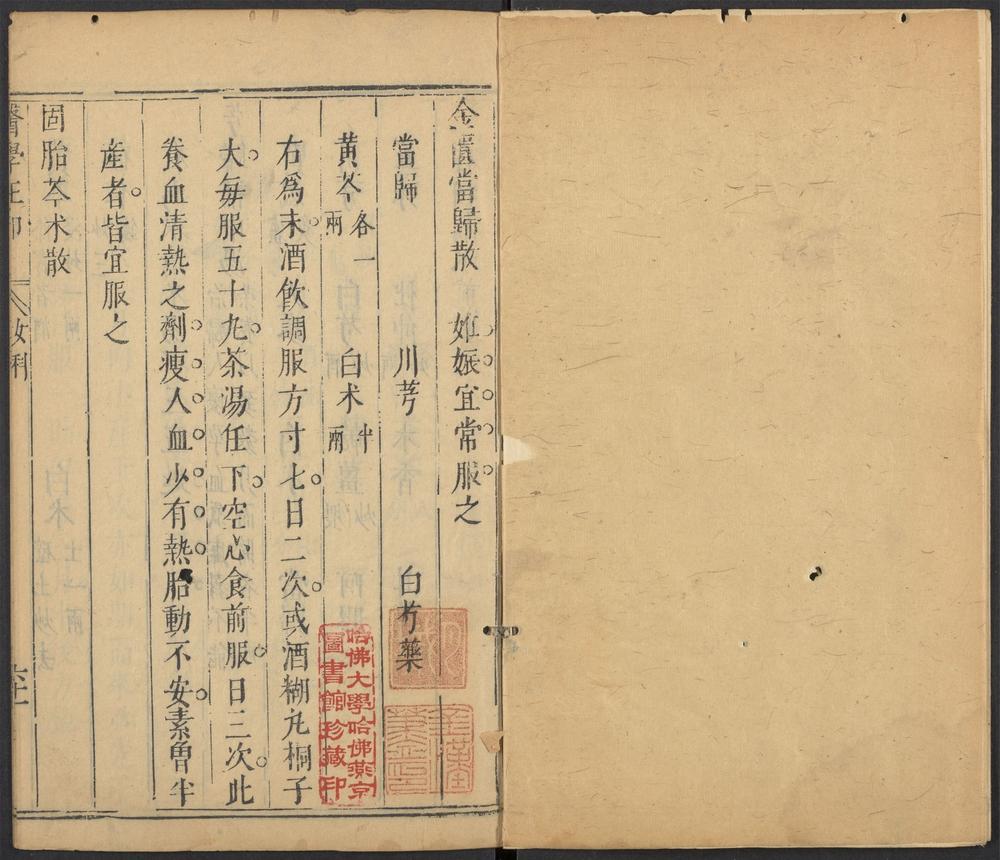 金匱當歸散 妊娠宜常服之
當歸 川芎 白芍藥
黄芩各一兩 白术半兩
右為末酒飲調服方寸七日二次或酒糊丸桐子
大每服五十丸茶湯任下空心食前服日三次此
養血清熱之劑瘦人血少有熱胎動不安素曾半
産者皆宜服之
固胎芩术散
醫學 女科
哈佛大學哈佛燕京
圖書館珍藏印